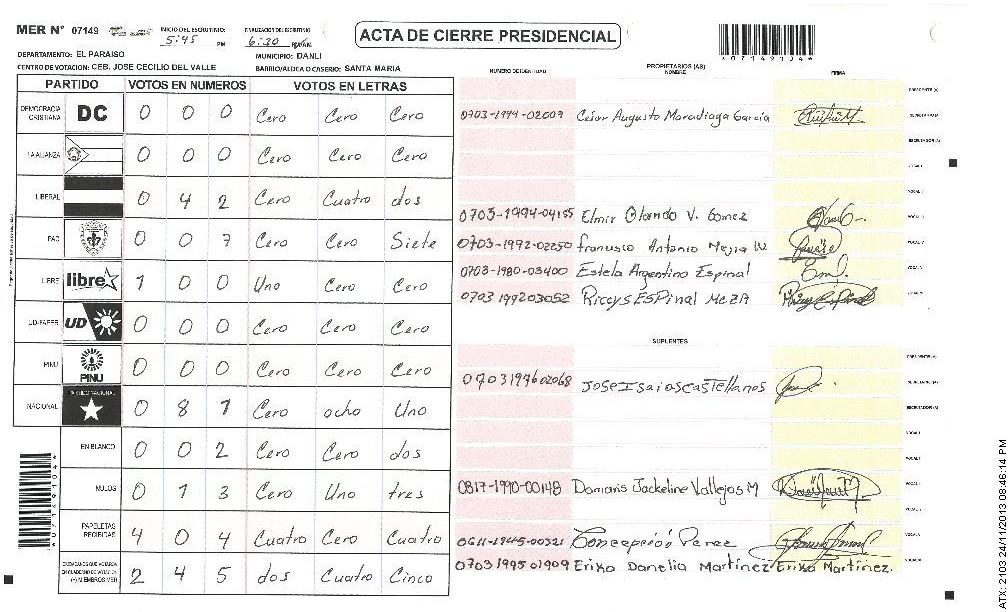 MER N° 07149 INICIO DEL ESCRUTINIO: 5:45 PM FINALIZACION DEL ESCRUTINIO: 6:30
ACTA DE CIERRE PRESIDENCIAL
*07149104*
DEPARTAMENTO: EL PARAISO MUNICIPIO: DANLI
CENTRO DE VOTACION: CEB. JOSE CECILIO DEL VALLE BARRIO/ALDEA O CASERIO: SANTA MARIA
NUMERO DE IDENTIDAD PROPIETARIOS (AS) NOMBRE FIRMA
PARTIDO VOTOS EN NUMEROS VOTOS EN LETRAS
DEMOCRACIA CRISTIANA DC 0 0 0 Cero Cero Cero
LA ALIANZA 0 0 0 Cero Cero Cero
LIBERAL 0 4 2 Cero Cuatro dos
PAC 0 0 7 Cero Cero Siete
LIBRE libre 1 0 0 Uno Cero Cero
UD-FAPER UD 0 0 0 Cero Cero Cero
PINU PINU 0 0 0 Cero Cero Cero
NACIONAL PARTIDO NACIONAL 0 8 1 Cero ocho Uno
EN BLANCO 0 0 2 Cero Cero dos
NULOS 0 1 3 Cero Uno tres
PAPELETAS RECIBIDAS 4 0 4 Cuatro Cero Cuatro
CIUDADANOS QUE VOTARON EN CUADERNO DE VOTACION (+) MIEMBROS MER 2 4 5 dos Cuatro Cinco
PRESIDENTE (A)
César Augusto Maradiaga García SECRETARIO (A)
ESCRUTADOR (A)
VOCAL I
Elmir Olando V. Gomez
0703-1992-02250 Antonio Mejia
0703-1980-03400 Estela Argentina Espinal
0703 199203052 Riccys ESPinal MEZA
SUPLENTES
PRESIDENTE (A)
0703199602068 JOSE ISaias casTellanos SECRETARIO (A)
ESCRUTADOR (A)
0817-1990-00148 Damaris Jackeline Vallejos M
0611-1945-00321 Concepción Perez
0703199501909 Erika Danelia Martinez Erika Martinez.
*07149104*
ATX: 2103 24/11/2013 08:46:14 PM